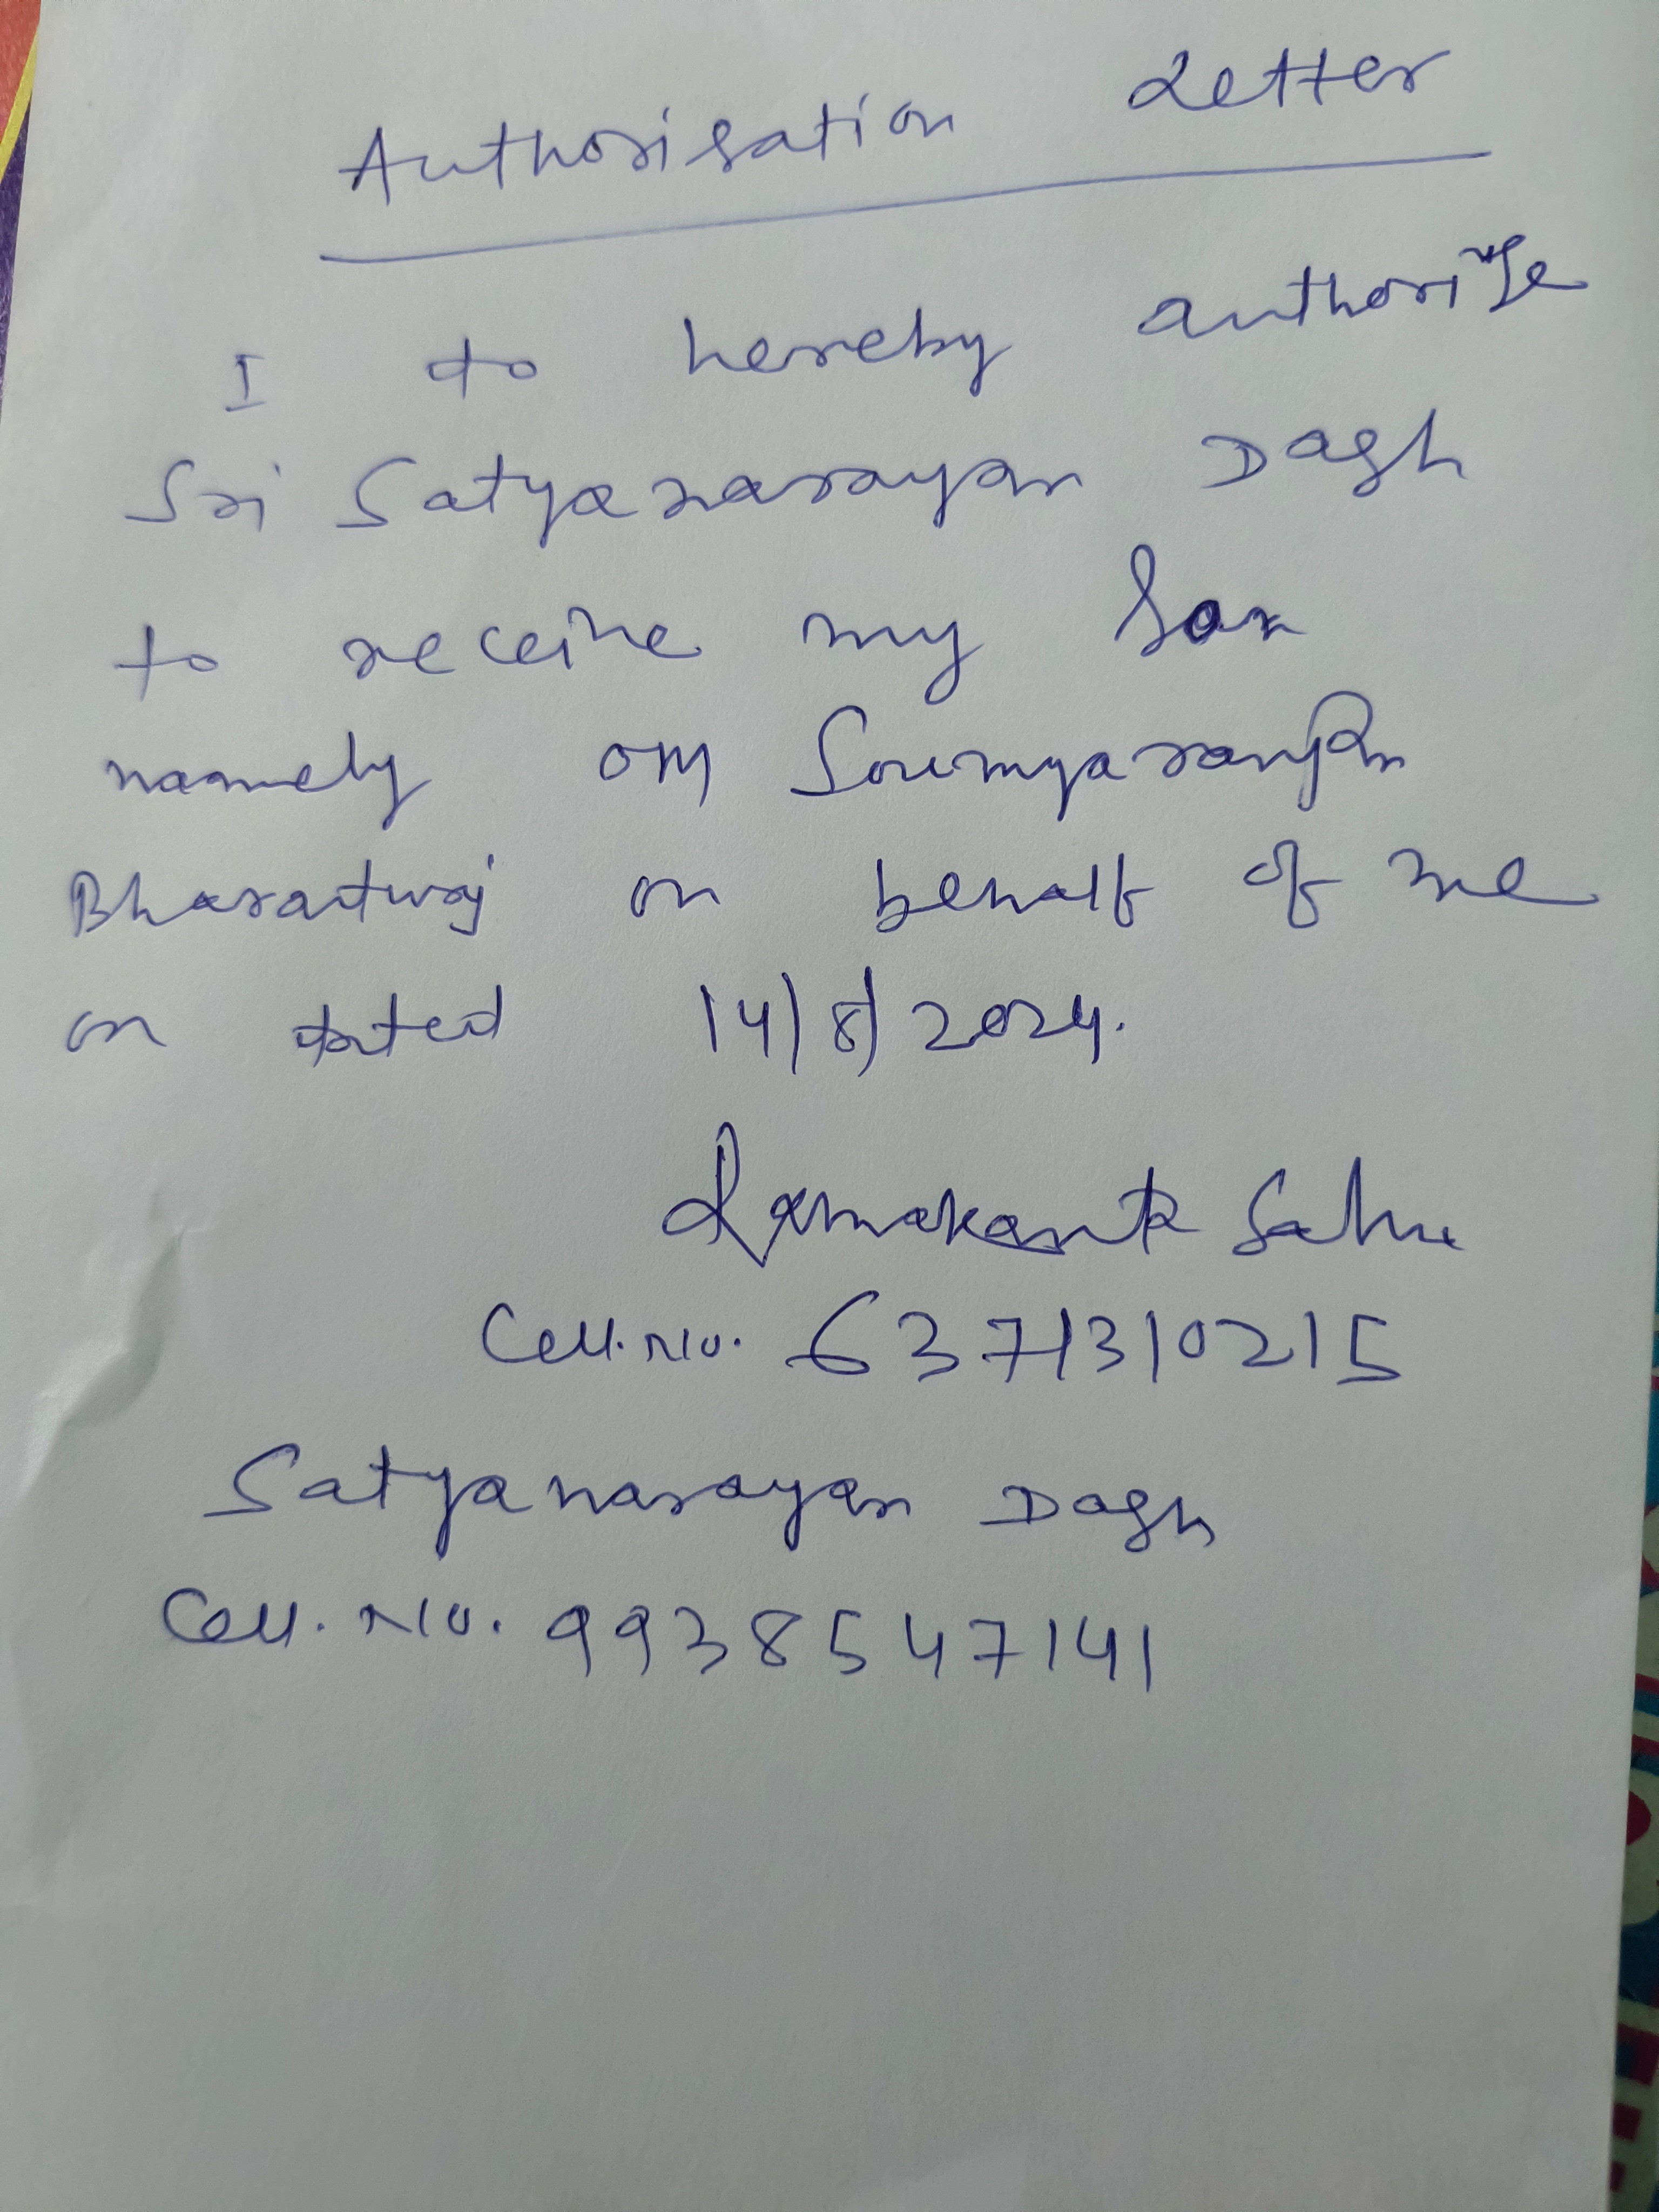 Authorisation Letter
I do hereby authorise
Sri Satyanarayan Dash
to receive my son
namely OM Soumyaranjan
Bharadwaj on behalf of me
on dated 14/8/2024.
Ramakanta Sahu
Cell.No. 6371310215
Satyanarayan Dash
Cell. No. 9938547141